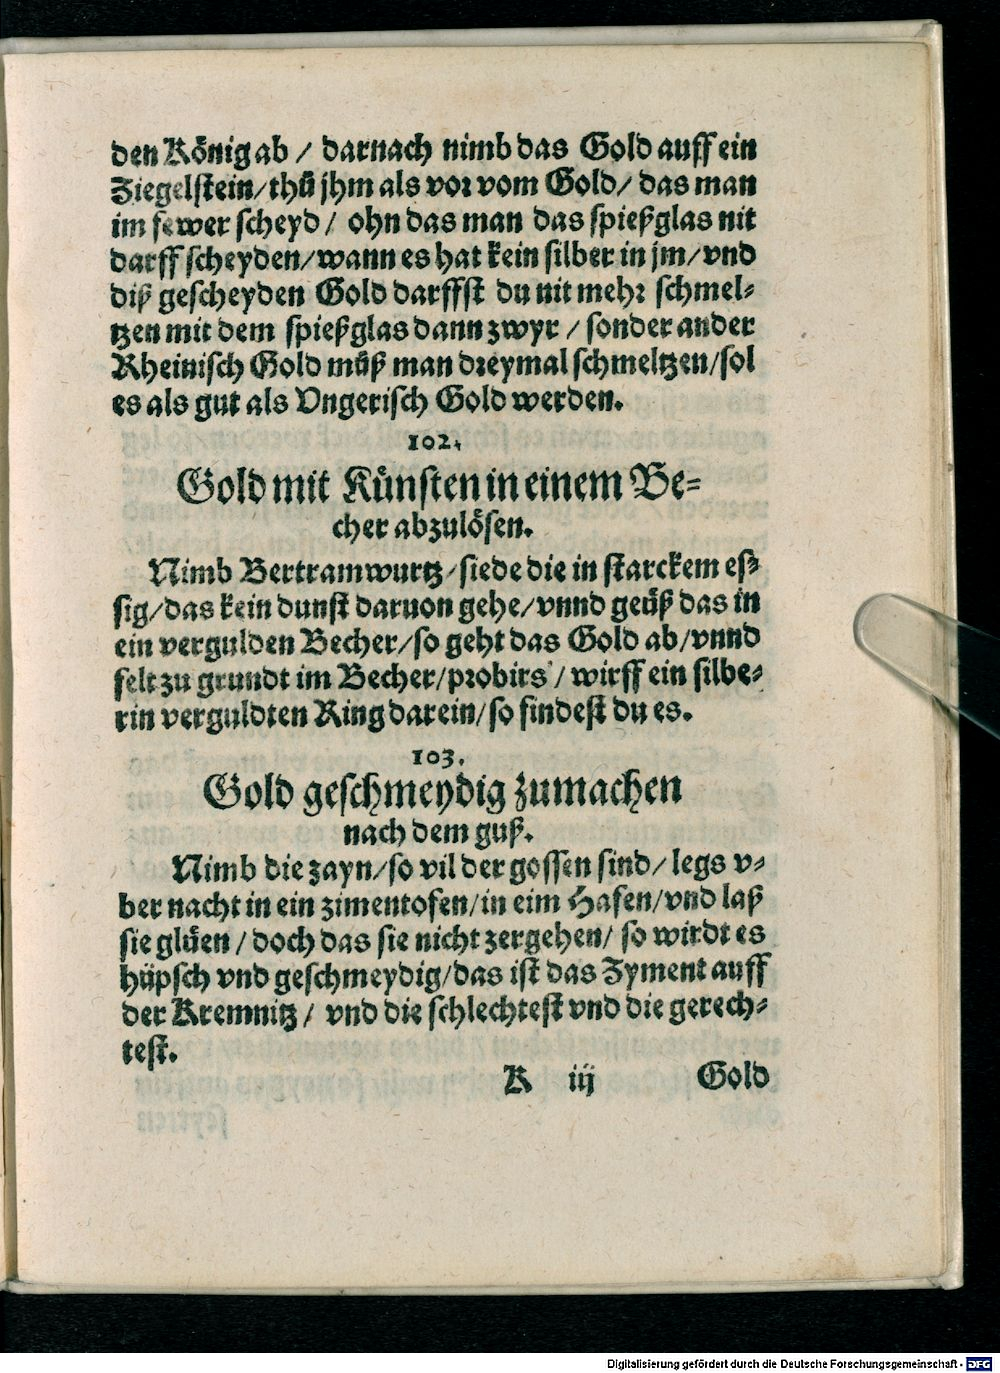 den Koͤnig ab / darnach nimb das Gold auff ein
Ziegelstein/thuͦ jhm als vor vom Gold/ das man
im fewer scheyd / ohn das man das spießglas nit
darff scheyden/wann es hat kein silber in jm/vnd
diß gescheyden Gold darffst du nit mehr schmel⸗
tzen mit dem spießglas dann zwyr / sonder ander
Rheinisch Gold muͦß man dreymal schmeltzen/sol
es als gut als Vngerisch Gold werden.
102.
Gold mit Kuͤnsten in einem Be⸗
cher abzuloͤsen.
Nimb Bertramwurtz/siede die in starckem es⸗
sig/das kein dunst daruon gehe/vnnd geuͤß das in
ein vergulden Becher/so geht das Gold ab/vnnd
felt zu grundt im Becher/probirs / wirff ein silbe⸗
rin verguldten Ring darein/so findest du es.
103.
Gold geschmeydig zumachen
nach dem guß.
Nimb die zayn/so vil der gossen sind/ legs v⸗
ber nacht in ein zimentofen/in eim Hafen/vnd laß
sie gluͤen / doch das sie nicht zergehen/ so wirdt es
huͤpsch vnd geschmeydig/das ist das Zyment auff
der Kremnitz / vnd die schlechtest vnd die gerech⸗
test.
K iij Gold
Digitalisierung gefördert durch die Deutsche Forschungsgemeinschaft - DFG